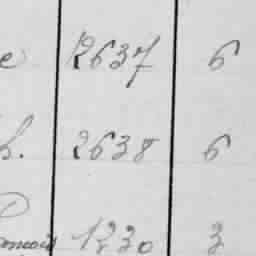 e 2637 6
h. 2638 6
1230 3